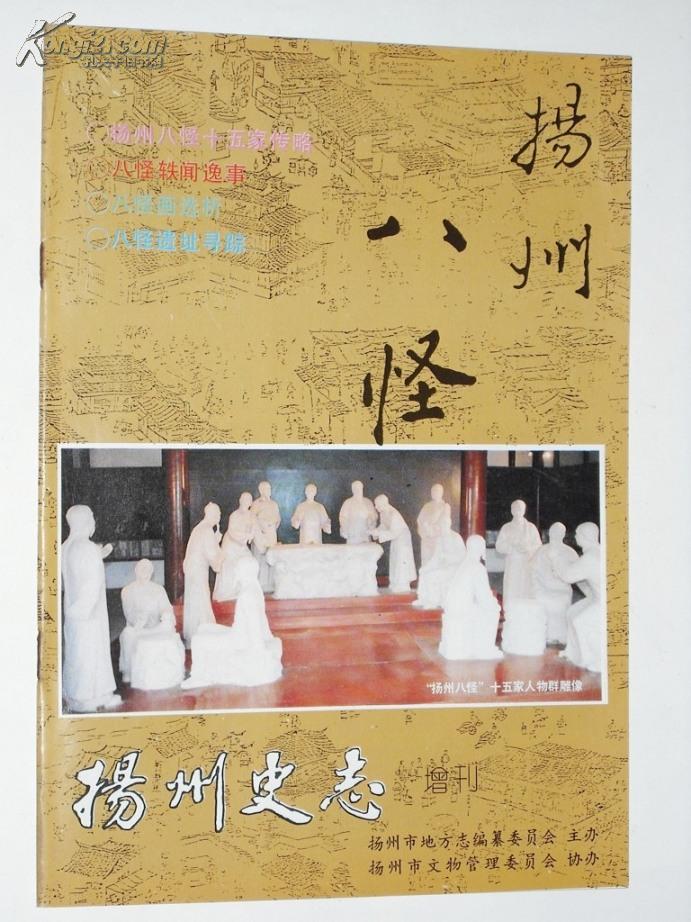 Kongfz.com
孔夫子旧书网
○扬州八怪十五家传略
○八怪轶闻逸事
○八怪画选析
○八怪遗址寻踪
揚州
八怪
“扬州八怪”十五家人物群雕像
揚州史志 增刊
扬州市地方志编纂委员会 主办
扬州市文物管理委员会 协办